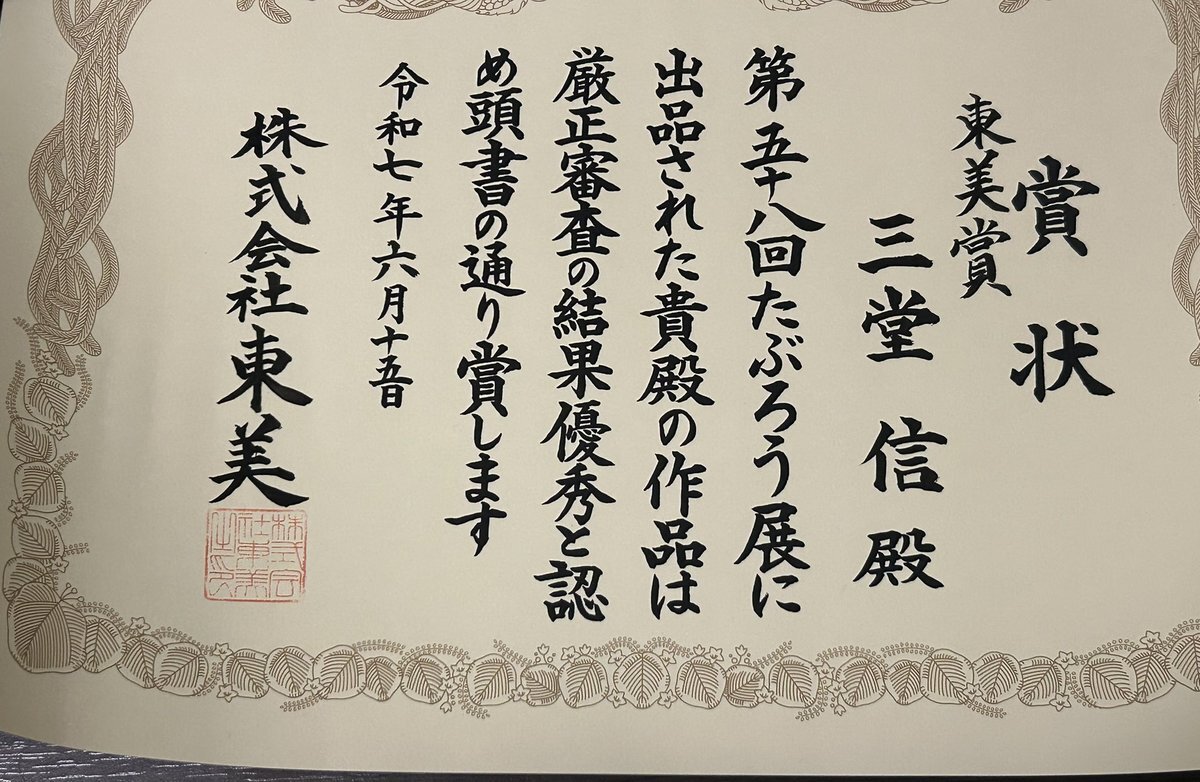 賞状
東美賞
三堂 信 殿
第五十八回たぶろう展に
出品された貴殿の作品は
厳正審査の結果優秀と認
め頭書の通り賞します
令和七年六月十五日
株式会社東美